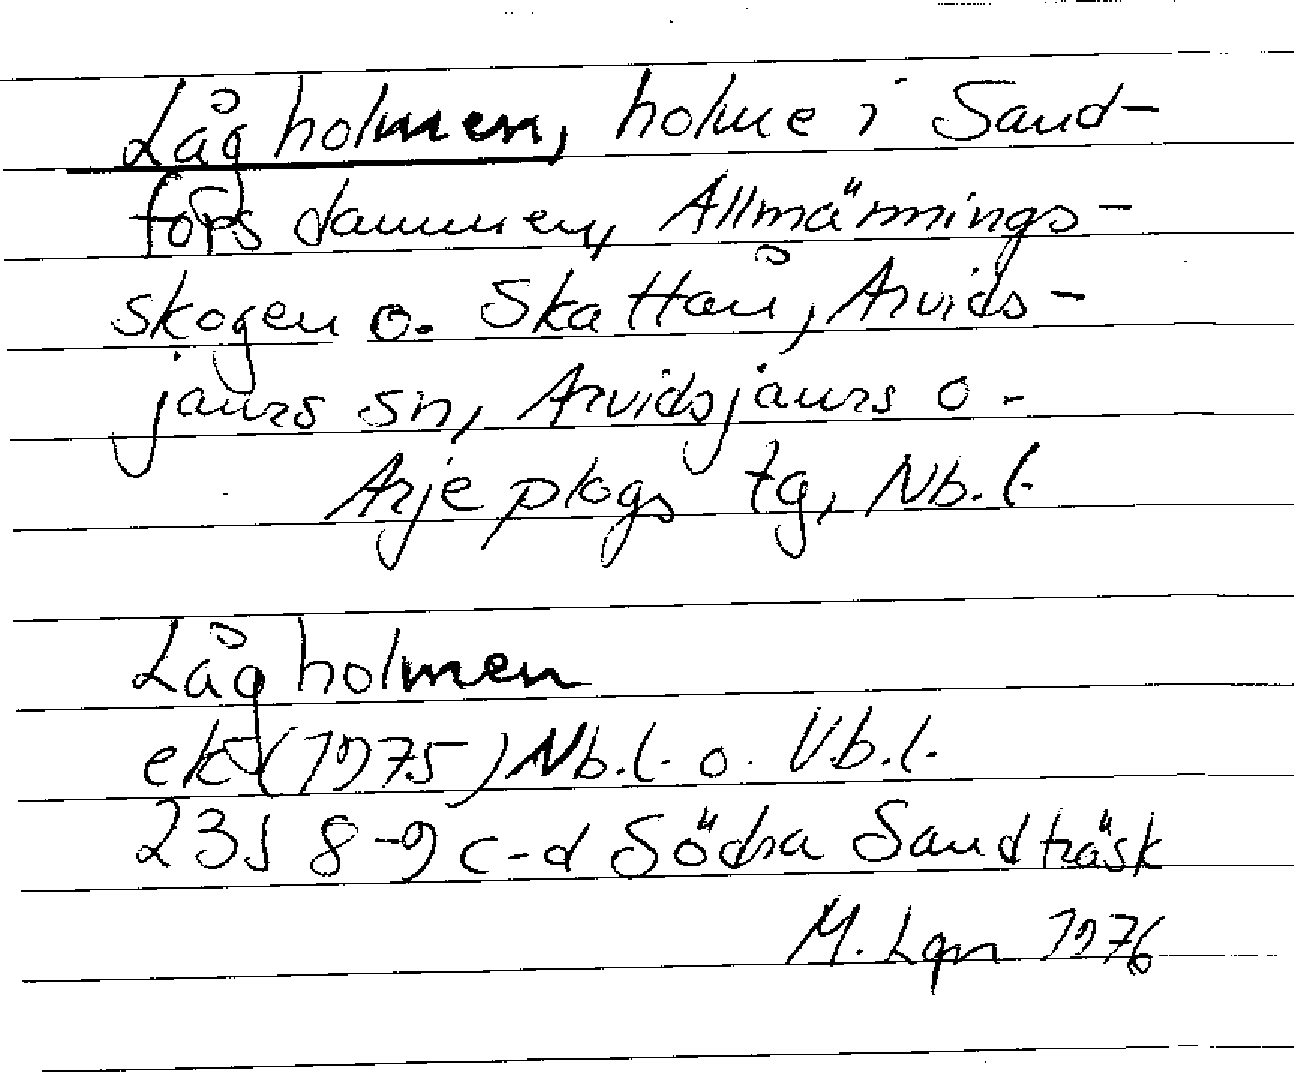 Lågholmen, holme i Sand-
fors dammen, Allmännings-
skogen o. Skattan, Arvids-
jaurs sn, Arvidsjaurs o.
Arjeplogs tg, Nb.l.
Lågholmen
ek (1975) Nb.l. o. Vb.l.
23J 8-9 c-d Södra Sandträsk
M. Lgn 1976